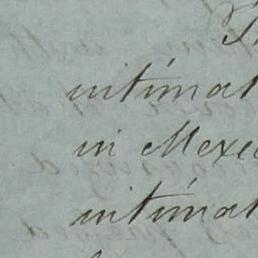 intimat
in Mexic
intimat